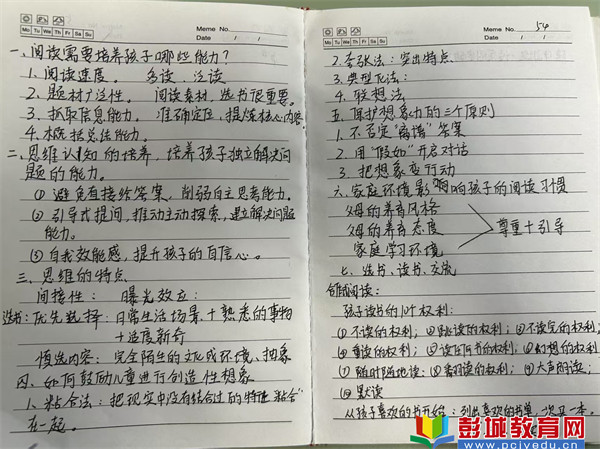 Mo Tu We Th Fr Sa Su
Meme No.
Date / /
一、阅读需要培养孩子哪些能力?
1、阅读速度。 多读、泛读
2、题材广泛性。 阅读素材,选书很重要。
3、抓取信息能力。 准确定位,提炼核心内容。
4、概括总结能力。
二、思维认知的培养,培养孩子独立解决问
题的能力。
① 避免直接给答案,削弱自主思考能力。
② 引导式提问,推动主动探索,建立解决问题
能力。
③ 自我效能感,提升孩子的自信心。
三、思维的特点
间接性: 曝光效应:
选书:优先选择:日常生活场景+熟悉的事物
+适度新奇
慎选内容:完全陌生的文化或环境、抽象
四、如何鼓励儿童进行创造性想象
1、粘合法:把现实中没有结合过的特征"粘合"
在一起。
Mo Tu We Th Fr Sa Su
Meme No. 54
Date / /
2、夸张法:突出特点
3、典型化法:
4、联想法
五、保护想象力的三个原则
1、不否定"离谱"答案
2、用"假如"开启对话
3、把想象变行动
六、家庭环境影响孩子的阅读习惯
父母的养育风格
父母的养育态度
家庭学习环境
尊重+引导
七、选书、读书、交流
阅读:
孩子读书的10个权利:
①不读的权利;②跳读的权利;③不读完的权利;
④重读的权利;⑤读任何书的权利;⑥幻想的权利
⑦随时随地读;⑧ 的权利;⑨大声阅读;
⑩默读
从孩子喜欢的书开始:列出喜欢的书单,次 一本。
彭城教育网
www.pcjyedu.com